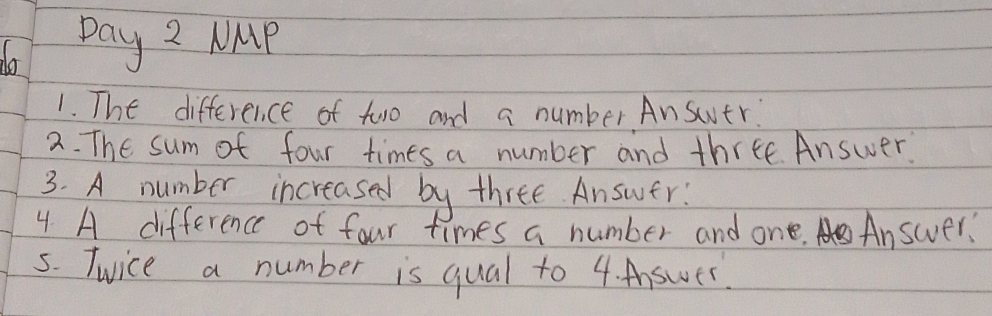 Day 2 NMP
1. The difference of two and a number. Answer:
2. The sum of four times a number and three. Answer:
3. A number increased by three. Answer:
4. A difference of four times a number and one. Answer:
5. Twice a number is qual to 4. Answer: